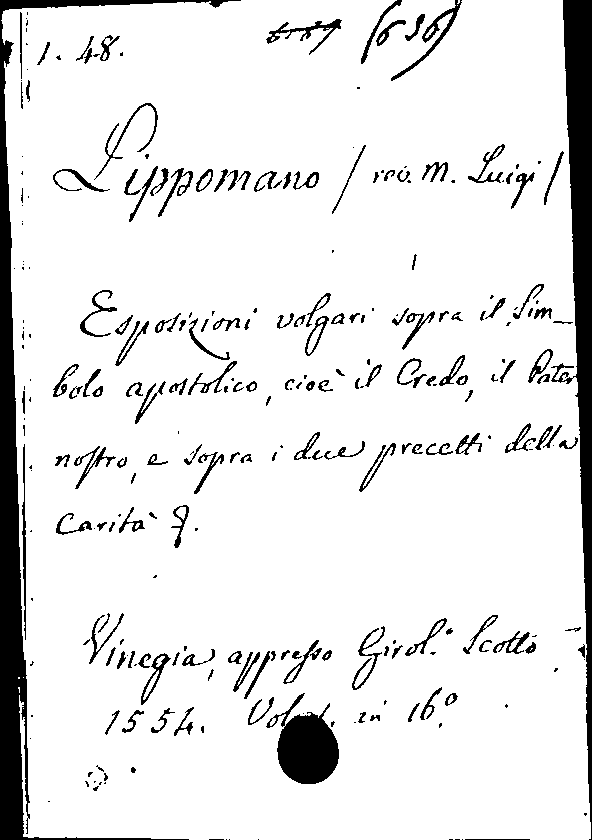 1. 48. (636)
Lippomano / rev. M. Luigi /
Esposizioni volgari sopra il Sim-
bolo apostolico, cioè il Credo, il Pater
nostro, e sopra i due precetti della
Carità
Vinegia, appresso Girol.º Scotto
1554. in 16.º